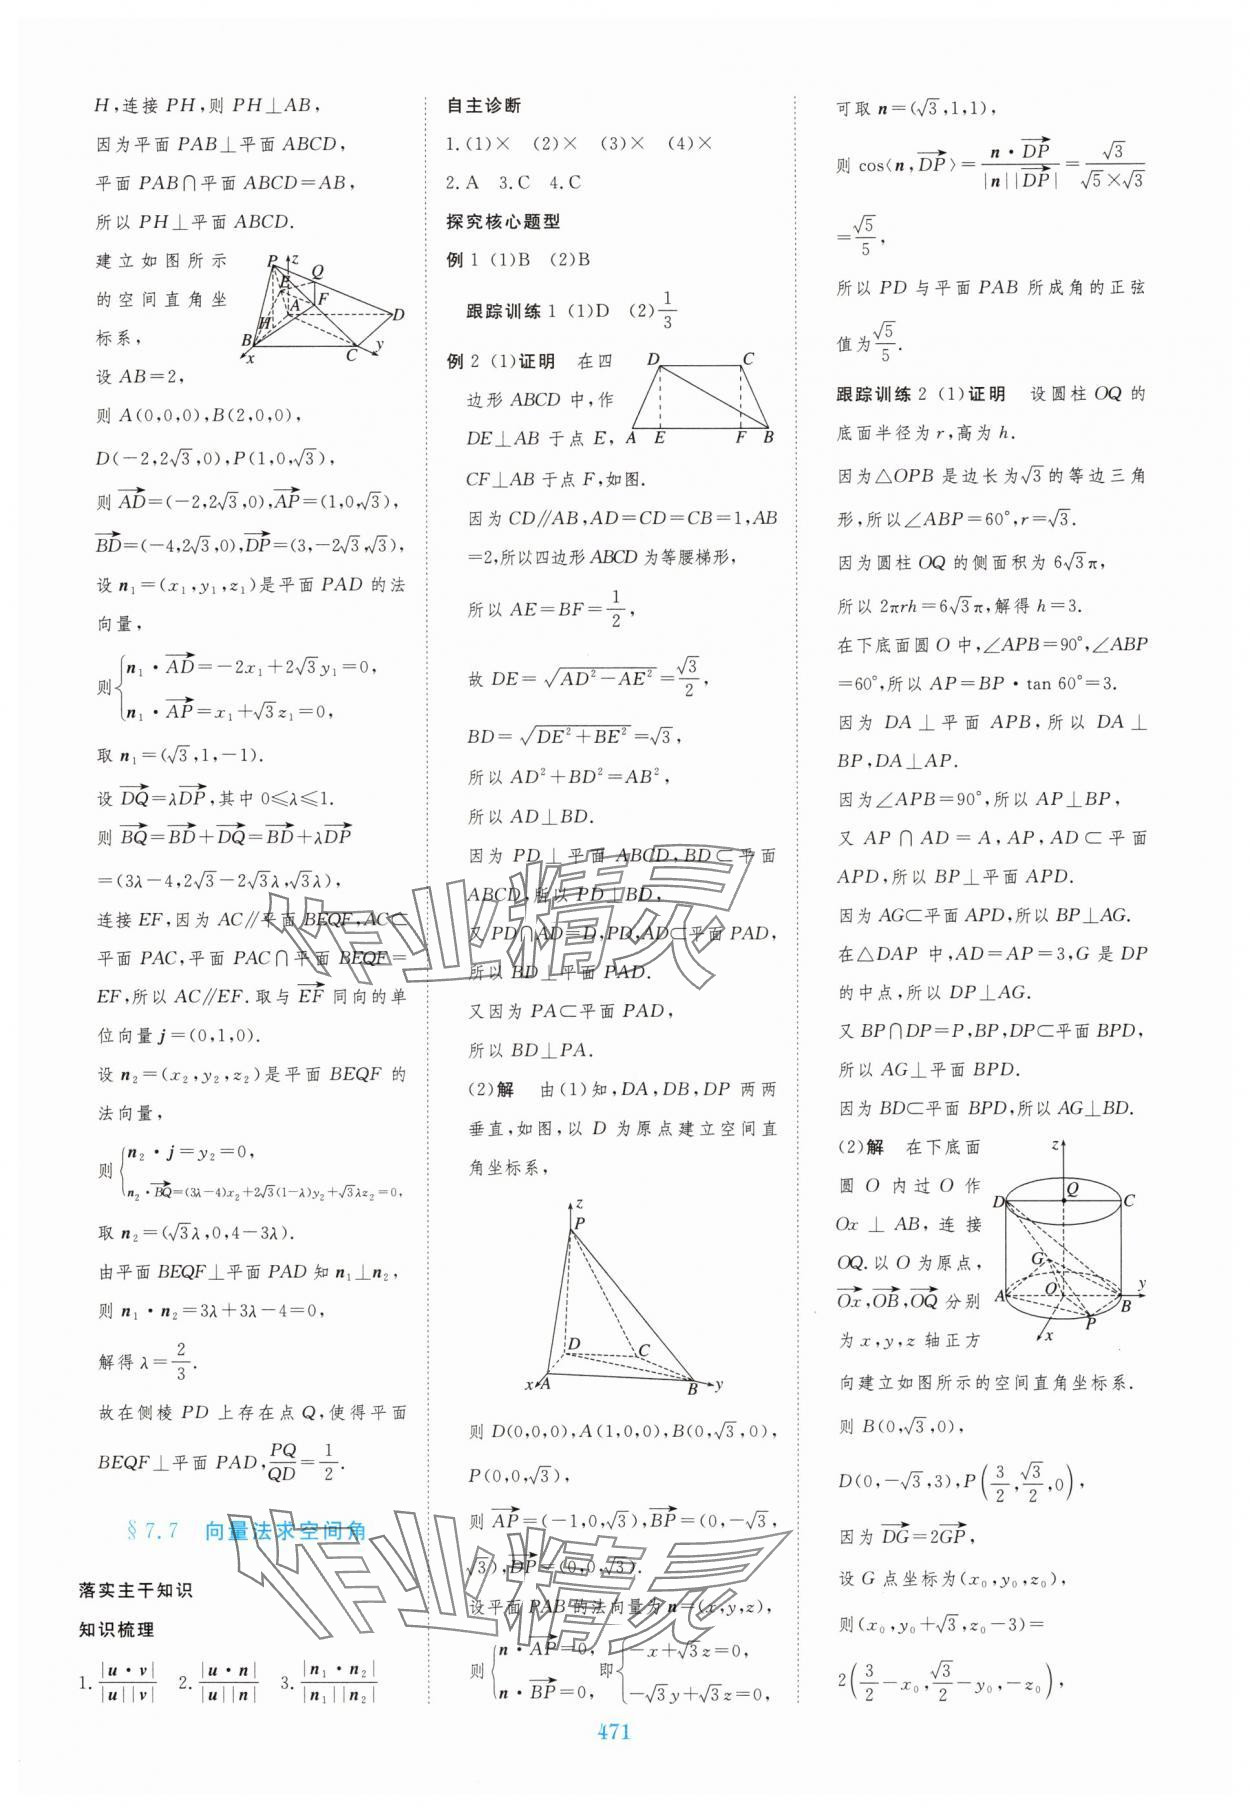 H,连接 PH,则 PH⊥AB,
因为平面 PAB⊥平面 ABCD,
平面 PAB∩平面 ABCD=AB,
所以 PH⊥平面 ABCD.
建立如图所示
的空间直角坐
标系,
P z Q E F A D H B x C y
设 AB=2,
则 A(0,0,0),B(2,0,0),
D(-2,2√3,0),P(1,0,√3),
则 \overrightarrow{AD}=(-2,2√3,0),\overrightarrow{AP}=(1,0,√3),
\overrightarrow{BD}=(-4,2√3,0),\overrightarrow{DP}=(3,-2√3,√3),
设 n₁=(x₁,y₁,z₁)是平面 PAD 的法
向量,
则{n₁·\overrightarrow{AD}=-2x₁+2√3y₁=0,
n₁·\overrightarrow{AP}=x₁+√3z₁=0,
取 n₁=(√3,1,-1).
设 \overrightarrow{DQ}=λ\overrightarrow{DP},其中 0≤λ≤1.
则 \overrightarrow{BQ}=\overrightarrow{BD}+\overrightarrow{DQ}=\overrightarrow{BD}+λ\overrightarrow{DP}
=(3λ-4,2√3-2√3λ,√3λ),
连接 EF,因为 AC∥平面 BEQF,AC⊂
平面 PAC,平面 PAC∩平面 BEQF=
EF,所以 AC∥EF.取与 \overrightarrow{EF} 同向的单
位向量 j=(0,1,0).
设 n₂=(x₂,y₂,z₂)是平面 BEQF 的
法向量,
则{n₂·j=y₂=0,
n₂·\overrightarrow{BQ}=(3λ-4)x₂+2√3(1-λ)y₂+√3λz₂=0,
取 n₂=(√3λ,0,4-3λ).
由平面 BEQF⊥平面 PAD 知 n₁⊥n₂,
则 n₁·n₂=3λ+3λ-4=0,
解得 λ=2/3.
故在侧棱 PD 上存在点 Q,使得平面
BEQF⊥平面 PAD,PQ/QD=1/2.
§7.7 向量法求空间角
落实主干知识
知识梳理
1.|u·v|/|u||v| 2.|u·n|/|u||n| 3.|n₁·n₂|/|n₁||n₂|
自主诊断
1.(1)× (2)× (3)× (4)×
2.A 3.C 4.C
探究核心题型
例 1 (1)B (2)B
跟踪训练 1 (1)D (2)1/3
例 2 (1)证明 在四
边形 ABCD 中,作
DE⊥AB 于点 E,
CF⊥AB 于点 F,如图.
D C A E F B
因为 CD∥AB,AD=CD=CB=1,AB
=2,所以四边形 ABCD 为等腰梯形,
所以 AE=BF=1/2,
故 DE=√(AD²-AE²)=√3/2,
BD=√(DE²+BE²)=√3,
所以 AD²+BD²=AB²,
所以 AD⊥BD.
因为 PD⊥平面 ABCD,BD⊂平面
ABCD,所以 PD⊥BD,
又 PD∩AD=D,PD,AD⊂平面 PAD,
所以 BD⊥平面 PAD.
又因为 PA⊂平面 PAD,
所以 BD⊥PA.
(2)解 由(1)知,DA,DB,DP 两两
垂直,如图,以 D 为原点建立空间直
角坐标系,
z P D C x A B y
则 D(0,0,0),A(1,0,0),B(0,√3,0),
P(0,0,√3),
则 \overrightarrow{AP}=(-1,0,√3),\overrightarrow{BP}=(0,-√3,
√3),\overrightarrow{DP}=(0,0,√3),
设平面 PAB 的法向量为 n=(x,y,z),
则{n·\overrightarrow{AP}=0, 即{-x+√3z=0,
n·\overrightarrow{BP}=0, -√3y+√3z=0,
可取 n=(√3,1,1),
则 cos⟨n,\overrightarrow{DP}⟩=n·\overrightarrow{DP}/|n||\overrightarrow{DP}|=√3/(√5×√3)
=√5/5,
所以 PD 与平面 PAB 所成角的正弦
值为√5/5.
跟踪训练 2 (1)证明 设圆柱 OQ 的
底面半径为 r,高为 h.
因为△OPB 是边长为√3的等边三角
形,所以∠ABP=60°,r=√3.
因为圆柱 OQ 的侧面积为 6√3π,
所以 2πrh=6√3π,解得 h=3.
在下底面圆 O 中,∠APB=90°,∠ABP
=60°,所以 AP=BP·tan 60°=3.
因为 DA⊥平面 APB,所以 DA⊥
BP,DA⊥AP.
因为∠APB=90°,所以 AP⊥BP,
又 AP∩AD=A,AP,AD⊂平面
APD,所以 BP⊥平面 APD.
因为 AG⊂平面 APD,所以 BP⊥AG.
在△DAP 中,AD=AP=3,G 是 DP
的中点,所以 DP⊥AG.
又 BP∩DP=P,BP,DP⊂平面 BPD,
所以 AG⊥平面 BPD.
因为 BD⊂平面 BPD,所以 AG⊥BD.
(2)解 在下底面
圆 O 内过 O 作
Ox⊥AB,连接
OQ.以 O 为原点,
\overrightarrow{Ox},\overrightarrow{OB},\overrightarrow{OQ}分别
为 x,y,z 轴正方
z D Q C G A O B y P x
向建立如图所示的空间直角坐标系.
则 B(0,√3,0),
D(0,-√3,3),P(3/2,√3/2,0),
因为 \overrightarrow{DG}=2\overrightarrow{GP},
设 G 点坐标为(x₀,y₀,z₀),
则(x₀,y₀+√3,z₀-3)=
2(3/2-x₀,√3/2-y₀,-z₀),
471
作业精灵
作业精灵